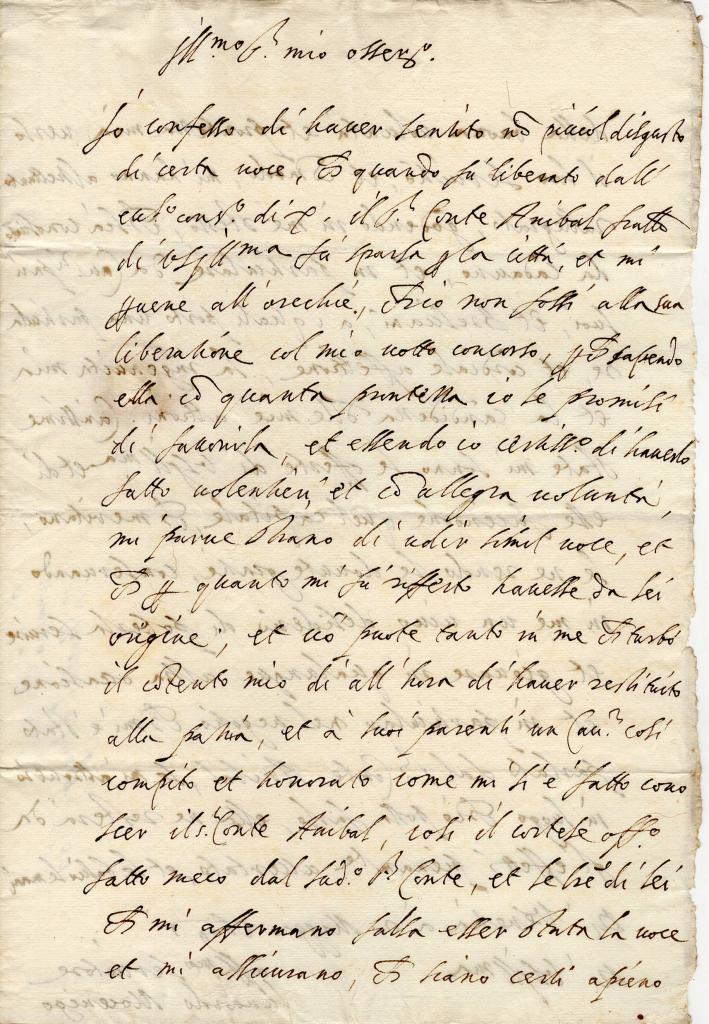 Ill.mo S.r mio osser.mo
Io confesso di hauer sentito nō picciol disgusto
di certa uoce, quando fù liberato dall'
ecc.so cons.o di X. il S.r Conte Anibal fratello
di V.S. Ill.ma fù sparsa la città, et mi
uene all'orechie, ch'io non fossi alla sua
liberatione col mio uotto concorso, sapendo
ella cō quanta prontezza io le promisi
di fauorirla, et essendo io certiss.o di hauerlo
fatto uolentieri, et cō allegra uoluntà,
mi parue strano di udir simil uoce, et
quanto mi fù rifferto hauesse da lei
origine; et ciò puote tanto in me
il cōtento mio di all'hora di hauer restituito
alla patria, et à suoi parenti un Cau.r così
compito et honorato come mi si è fatto cono
scer il S.r Conte Anibal, così il cortese off.o
fatto meco dal sud.o S.r Conte, et le lr̄e di lei
mi affermano falsa esser stata la uoce
et mi assicurano, siano certi apieno